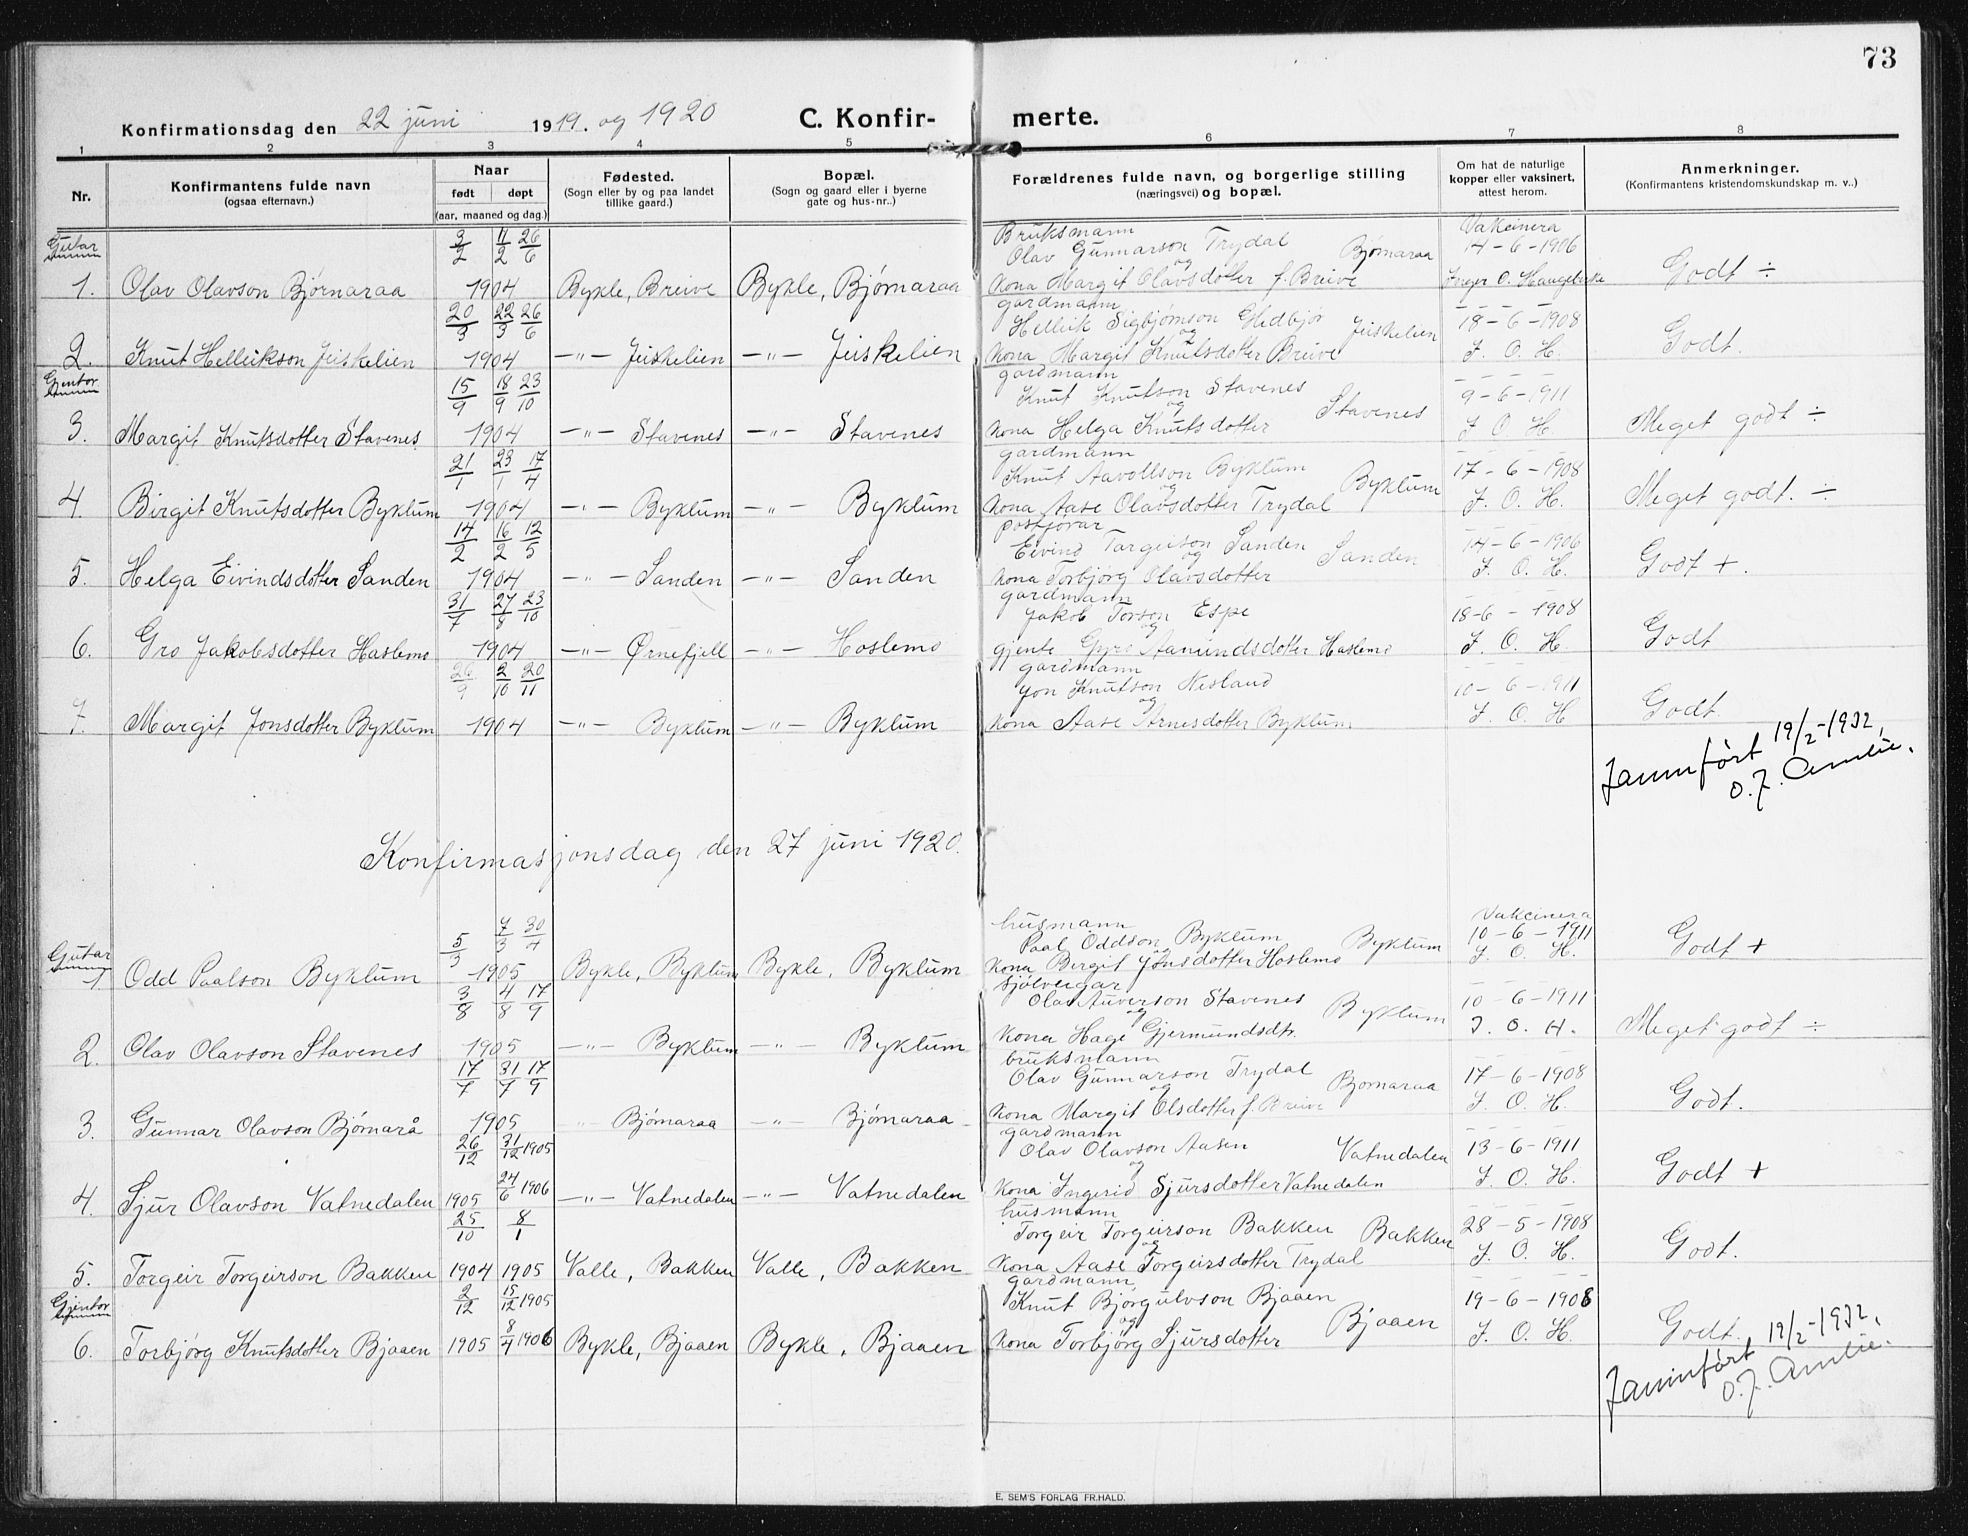 73
Konfirmationsdag den 22 juni 1919. og 1920 C. Konfir- merte.
1 2 3 4 5 6 7 8
Nr.
Konfirmantens fulde navn
(ogsaa efternavn.)
Naar
født døpt
(aar, maaned og dag.)
Fødested.
(Sogn eller by og paa landet
tillike gaard.)
Bopæl.
(Sogn og gaard eller i byerne
gate og hus-nr..)
Forældrenes fulde navn, og borgerlige stilling
(næringsvei) og bopæl.
Om hat de naturlige
kopper eller vaksinert,
attest herom.
Anmerkninger.
(Konfirmantens kristendomskundskap m. v..)
Gutar
3/2 11/2 26/6
Bruksmann
Olav Gunnarson Trydal Bjørnaraa
og
Vakcinera
14-6-1906
1. Olav Olavson Bjørnaraa 1904 Bykle, Breive Bykle, Bjørnaraa Kona Margit Olavsdotter f. Breive Inger O. Haugebirke Godt ÷
20/3 22/3 26/6
gardmann
Hellik Sigbjørnson Glidbjør Jeiskelien 18-6-1908
og
2. Knut Helleikson Jeiskelien 1904 -"- Jeiskelien -"- Jeiskelien Kona Margit Knutsdotter Breive I. O. H. Godt.
Gjentor
15/9 18/9 23/10
gardmann
Knut Knutson Stavenes Stavenes 9-6-1911
og
3. Margit Knutsdotter Stavenes 1904 -"- Stavenes -"- Stavenes Kona Helga Knutsdotter I O H. Meget godt ÷
21/1 23/1 17/4
gardmann
Knut Aavollson Byklum Byklum 17-6-1908
og
4. Birgit Knutsdotter Byklum 1904 -"- Byklum -"- Byklum Kona Aase Olavsdotter Trydal I. O. H. Meget godt. ÷
14/2 16/2 12/5
postførar
Eivind Targeison Sanden Sanden 14-6-1906
og
5. Helga Eivindsdotter Sanden 1904 -"- Sanden -"- Sanden Kona Torbjørg Olavsdotter I. O. H. Godt +.
31/7 27/8 23/10
gardmann
Jakob Torson Espe 18-6-1908
og
6. Gro Jakobsdotter Haslemo 1904 -"- Ørnefjell -"- Hoslemo gjente Gyro Aamundsdotter Haslemo I. O. H. Godt
26/9 2/10 20/11
gardmann
Jon Knutson Nesland 10-6-1911
og
7. Margit Jonsdotter Byklum 1904 -"- Byklum -"- Byklum Kona Aase Arnesdotter Byklum I. O. H Godt
Jamnført 19/2-1932,
O. J. Amlie.
Konfirmasjonsdag den 27 juni 1920.
Gutar
5/3 7/3 30/4
husmann
Paal Oddson Byklum Byklum
Vakcinera
10-6-1911
1. Odd Paalson Byklum 1905 Bykle, Byklum Bykle, Byklum Kona Bergit Jonsdotter Hoslemo I. O. H. Godt +
3/8 4/8 17/9
sjølveigar
Olav Auverson Stavenes Byklum 10-6-1911
og
2. Olav Olavson Stavenes 1905 -"- Byklum -"- Byklum Kona Hage Gjermundsdtr. I. O. H. Meget godt ÷
17/7 31/7 17/9
bruksmann
Olav Gunnarson Trydal Bjornaraa 17-6-1908
og
3. Gunnar Olavson Bjørnarå 1905 " Bjørnaraa -"- Bjørnaraa Kona Margit Olsdotter f. Breive I. O. H. Godt.
26/12 31/12 1905
gardmann
Olav Olavson Aasen Vatnedalen 13-6-1911
og
24/6 1906
4. Sjur Olavson Vatnedalen 1905 -"- Vatnedalen -"- Vatnedalen Kona Ingerid Sjursdotter Vatnedalen I. O. H. Godt +
25/10 8/1
husmann
Torgeir Torgeirson Bakken Bakken 28-5-1908
og
5. Torgeir Torgeirson Bakken 1904 1905 Valle, Bakken Valle, Bakken Kona Aase Torgeirsdotter Trydal I. O. H. Godt.
Gjentor
2/12 15/12 1905
gardmann
Knut Bjørgulvson Bjaaen Bjaaen 19-6-1908
og
8/4 1906
6. Torbjørg Knutsdotter Bjaaen 1905 Bykle, Bjaaen Bykle, Bjaaen Kona Torbjørg Sjursdotter I. O. H. Godt.
Jamnført 19/2-1932,
O. J. Amlie.
E. SEM'S FORLAG FR.HALD.